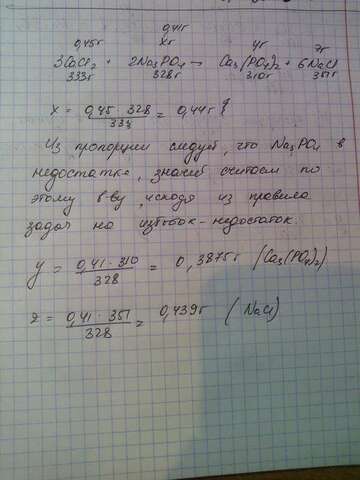 0,41г
0,45г хг уг zг
3CaCl₂ + 2Na₃PO₄ → Ca₃(PO₄)₂ + 6NaCl
333г 328г 310г 351г
x = 0,45 · 328 / 333 = 0,44г
Из пропорции следует, что Na₃PO₄ в
недостатке, значит считаем по
этому в-ву, исходя из правила
задач на избыток-недостаток.
y = 0,41 · 310 / 328 = 0,3875г (Ca₃(PO₄)₂)
z = 0,41 · 351 / 328 = 0,439г (NaCl)